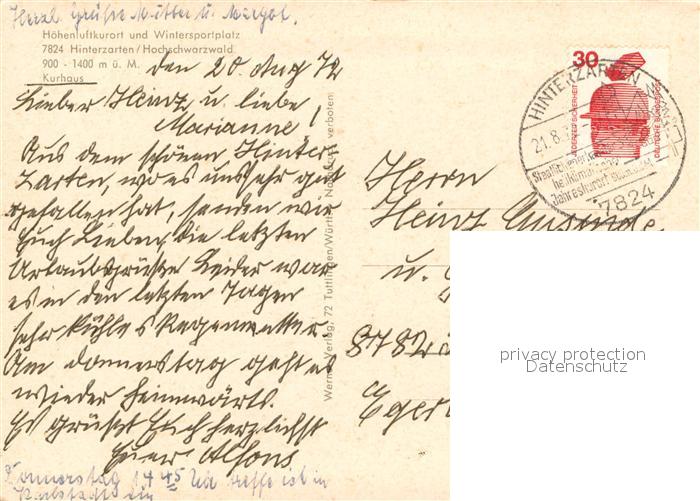 Herzl. Grüße Mutter u. Margot.
Höhenluftkurort und Wintersportplatz
7824 Hinterzarten/Hochschwarzwald
900 - 1400 m ü. M.
Kurhaus
den 20. Aug 72
Lieber Heinz u. liebe
Marianne!
Aus dem schönen Hinter-
zarten, wo es uns sehr gut
gefallen hat, senden wir
Euch Lieben, die letzten
Urlaubsgrüße. Leider war
es in den letzten Tagen
sehr kühles Regenwetter.
Am Donnerstag geht es
wieder heimwärts.
Es grüßt Euch herzlichst
Euer Alfons
Donnerstag 14 45 Uhr treffe ich in
Karlstadt ein
Werner Verlag, 72 Tuttlingen/Württ. Nachdruck verboten
30
DEUTSCHE BUNDESPOST
HINTERZARTEN
21.8.
7824
Herrn
Heinz
u.
8782
privacy protection
Datenschutz